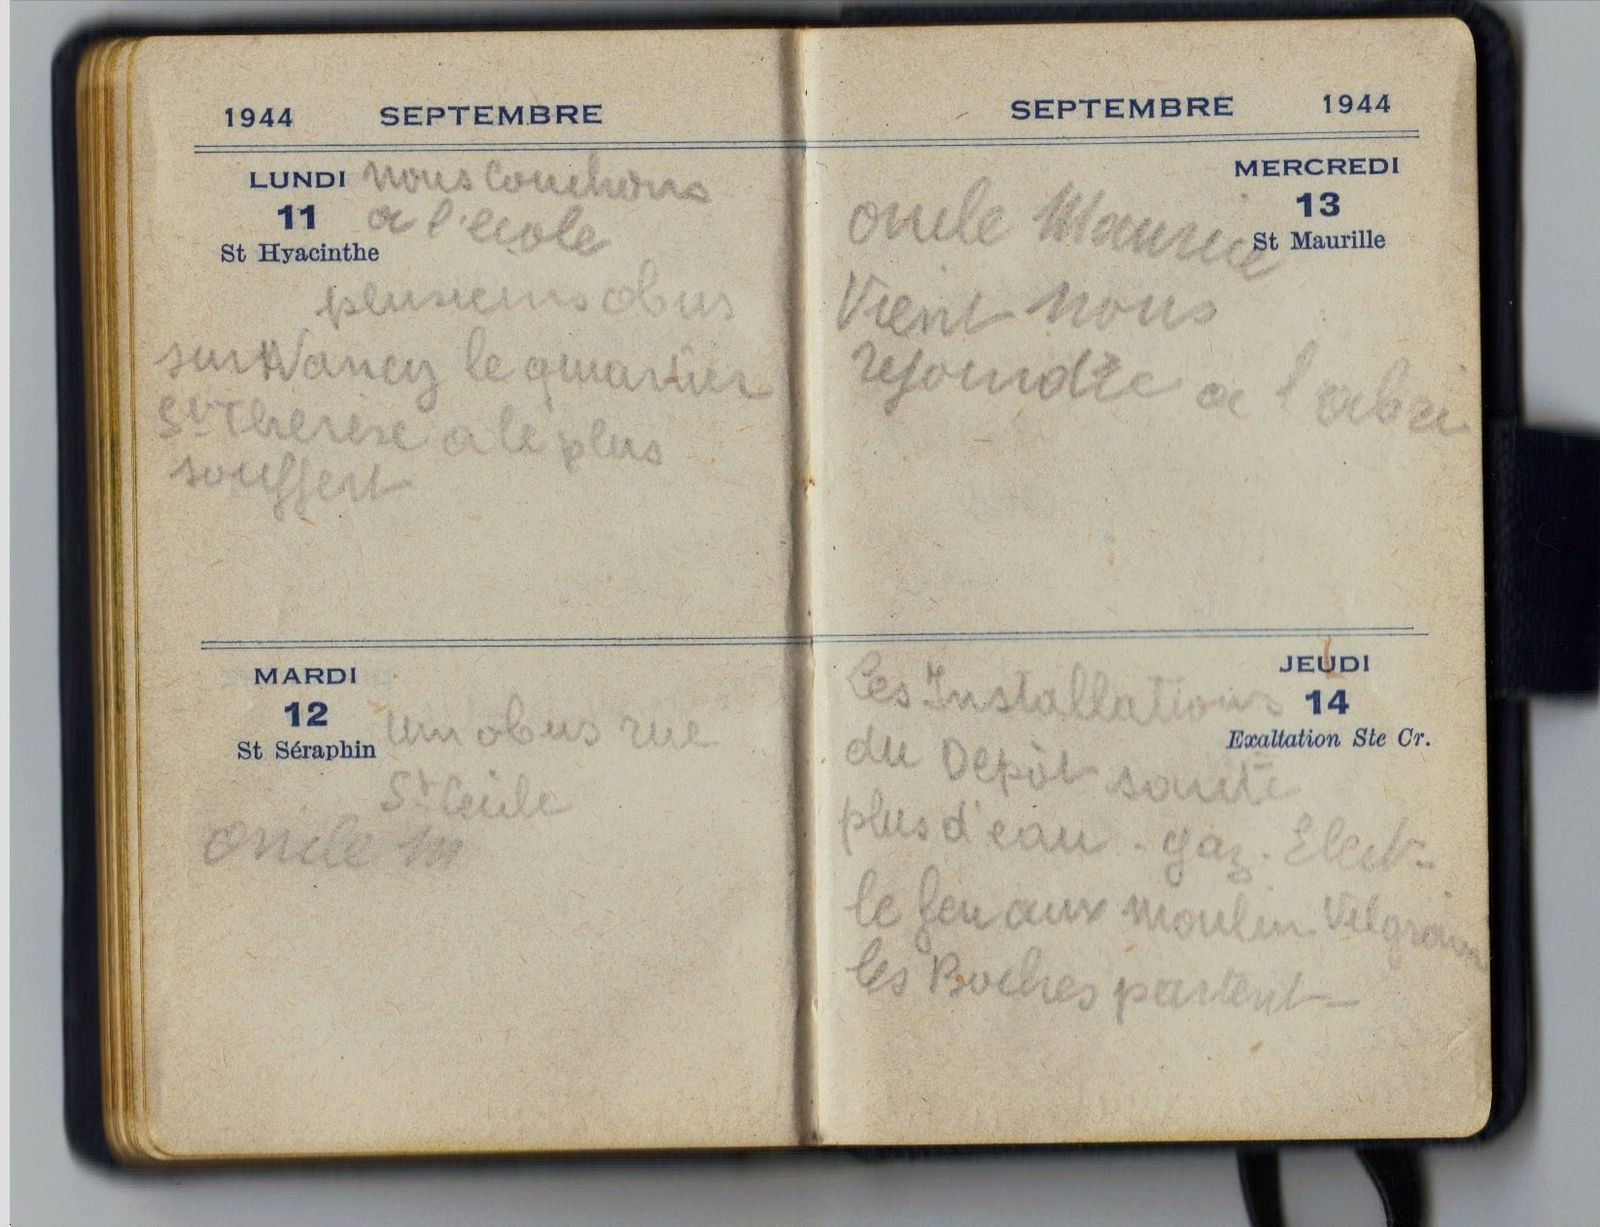 1944 SEPTEMBRE
LUNDI nous couchons
11 a l'ecole
St Hyacinthe
plusieurs obus
sur Nancy le quartier
St Therèse a le plus
souffert
MARDI
12
St Séraphin un obus rue
St Cecile
oncle M
SEPTEMBRE 1944
MERCREDI
13
St Maurille
oncle Maurice
Vient nous
rejoindre a l'abri
JEUDI
14
Exaltation Ste Cr.
les Installations
du Depôt saute
plus d'eau - gaz. Elect-
le feu aux moulin Vilgrain
les Boches partent-